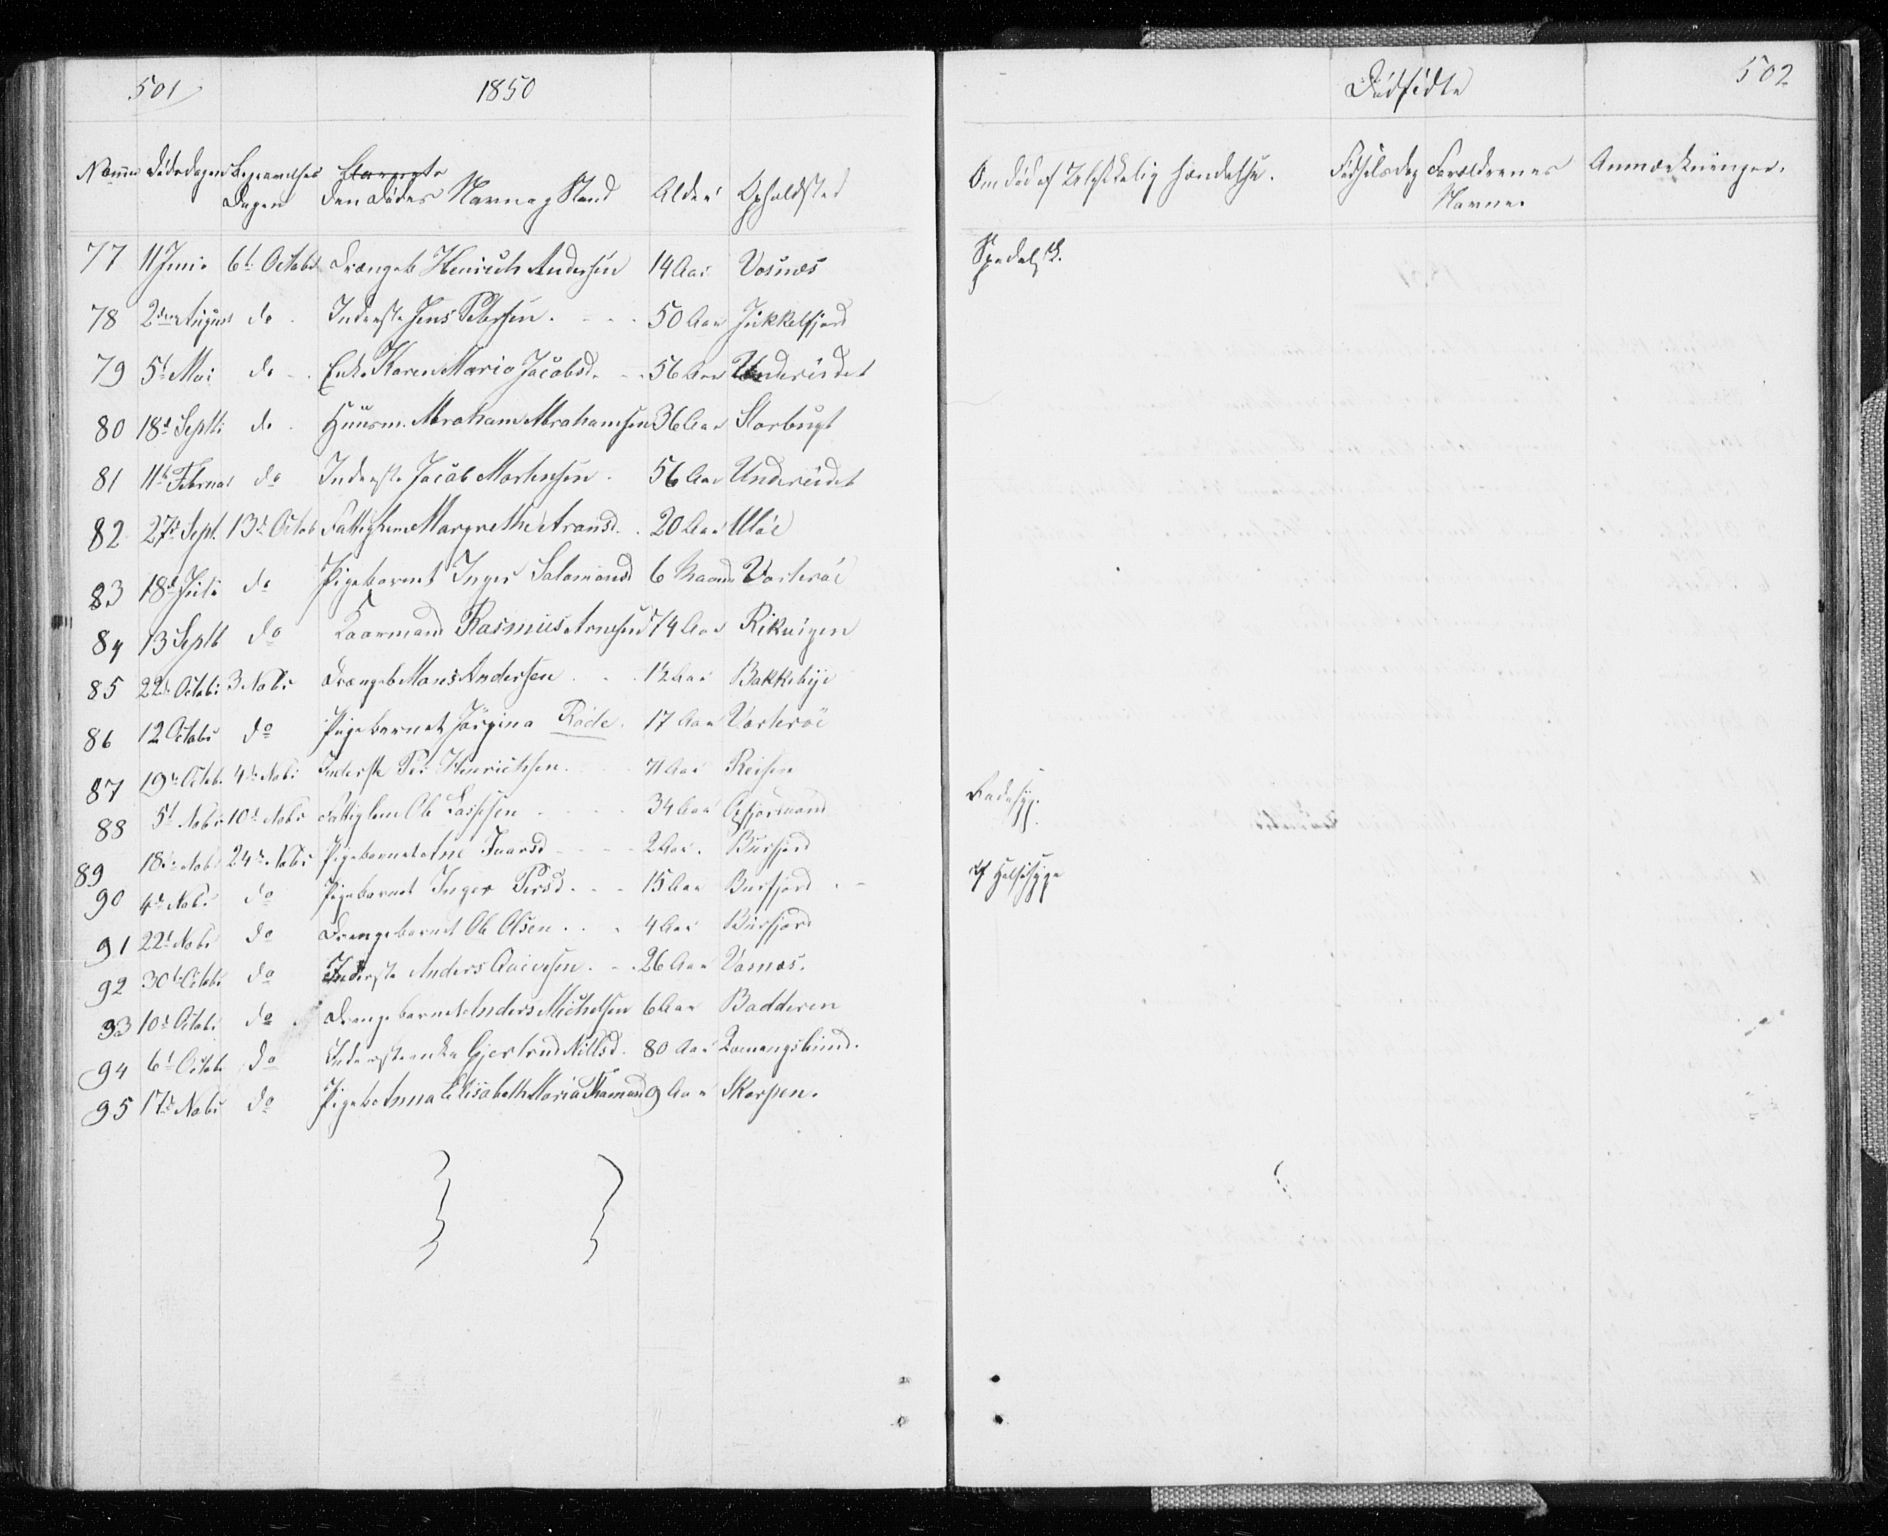 501
1850
Døds dagen Begravelses Dagen
Den Dødes Navn og Stand
Alder
Opholdsted
77 11 Juni 6t Octobr Drængeb Henrich Andersen 14 Aar Vosnæs
78 2den August do Inderste Jens Petersen. 50 Aar Jükkelfjord
79 5t Mai do Enke Karen Maria Jacobsd. 56 Aar Undereidet
80 18d Septb: do Huusm. Abraham Abrahamsen 36 Aar Storbugt
81 11t Februar do Inderste Jacob Mortensen. 56 Aar Undereidet
82 27d Sept. 13d Octob Fattiglem Margrethe Aronsd. 20 Aar Uløe
83 18d Juli do Pigebarnet Inger Salamonsd 6 Maand Vorterøe
84 13 Septb do Kaarmand Rasmus Arnesen 74 Aar Rikvigen
85 22d Octobr 3 Nobr Drængeb Mons Andersen 12 Aar Bakkebye
86 12 Octobr do Pigebarnet Jørgina Røde. 17 Aar Vorterøe
87 19d Octob. 4d Nobr Inderste Per Henrichsen. Aar Reisen
88 5t Nobr 10d Nobr Fattiglem Ole Lassesen 34 Aar
89 18d Nobr 24d Nobr Pigebarnet Ane Ivarsd 2 Aar. Burfjord
90 4d Nobr do Pigebarnet Inger Persd. 15 Aar Burfjord
91 22d Nobr do Drængebarnet Ole Olsen 4 Aar Burfjord
92 30t Octobr do Inderste Anders 26 Aar Vosnæs.
93 10d Octobr do Drængebarnet Anders Michelsen 6 Aar Badderen
94 6t Octobr do Inderste enke Gjertrud Nillsd. 80 Aar
95 17d Nobr do Pigeb Anna Elisabeth Maria 9 Aar Skorpen.
502
Dødfødte
Om død af Ulykkelig Hændelse.
Fødselsdag
Forældrenes Navne.
Anmærkninger.
Spedalsk.
Radesyg.
Af Halssyge